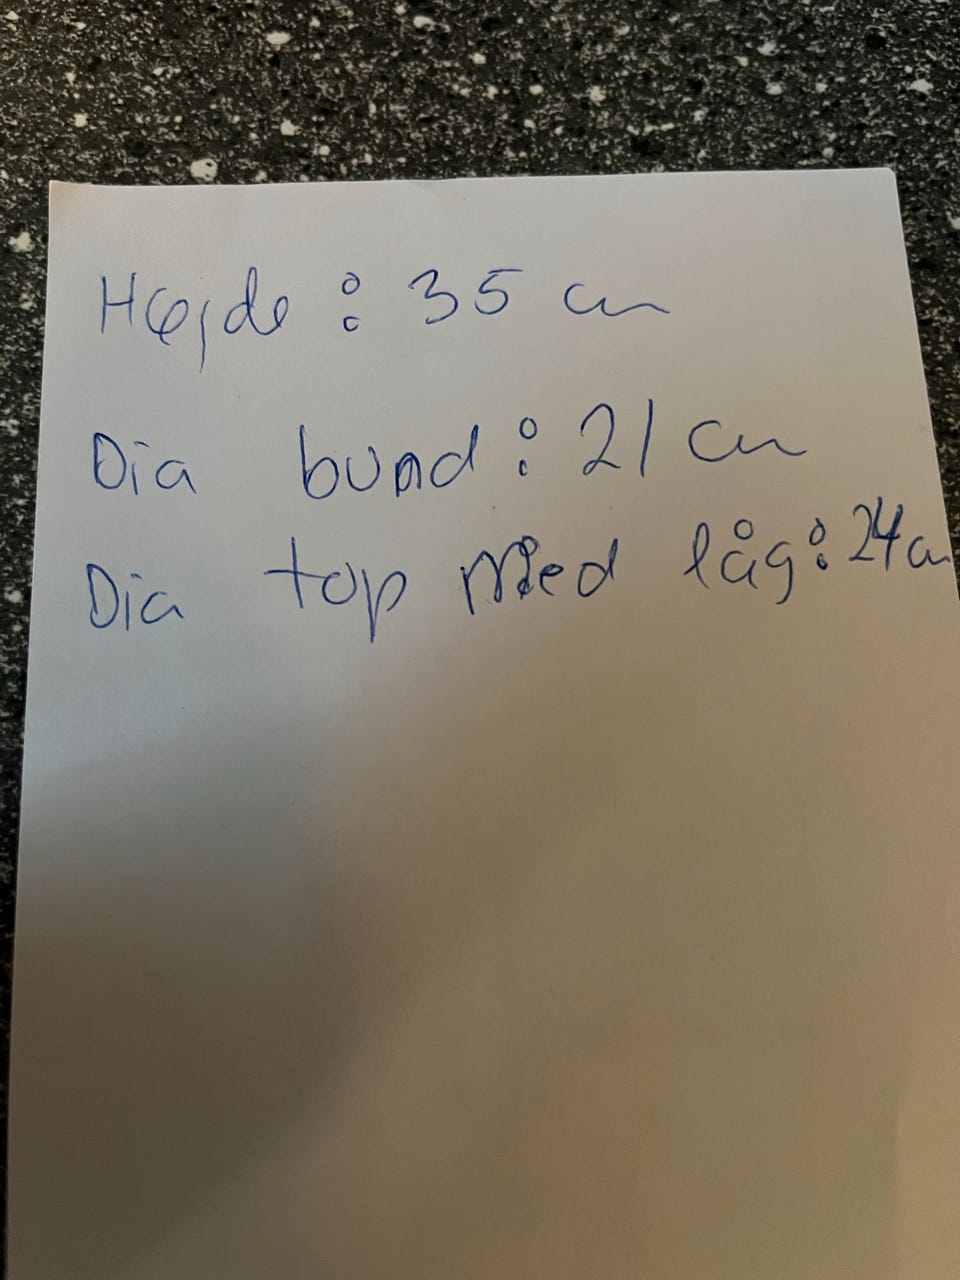 Højde : 35 cm
Dia bund : 21 cm
Dia top med låg : 24 cm